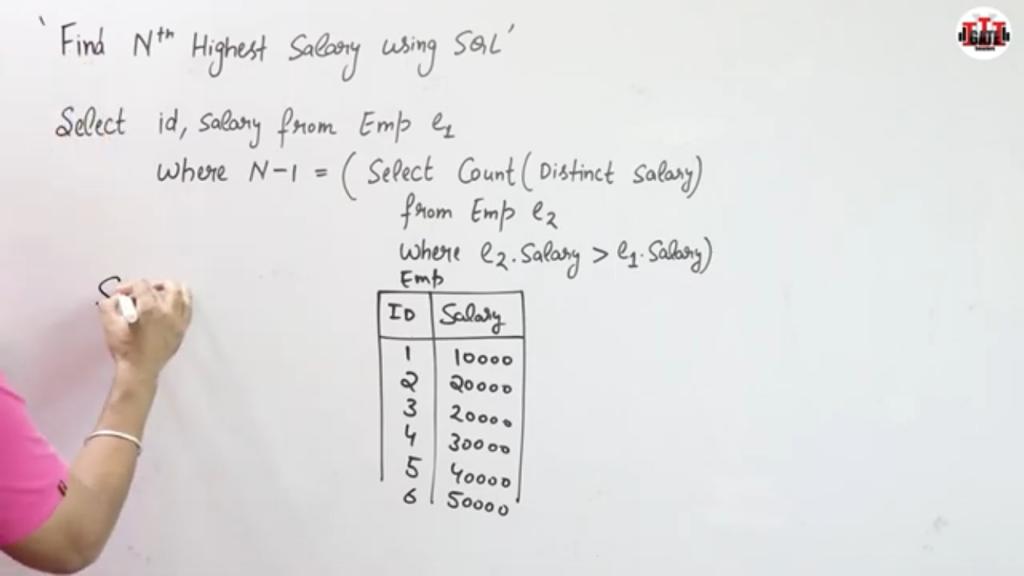 'Find Nth Highest Salary using SQL'
Select id, Salary from Emp e1
where N-1 = ( Select Count(Distinct Salary)
from Emp e2
where e2.Salary > e1.Salary)
Emp
ID Salary
1 10000
2 20000
3 20000
4 30000
5 40000
6 50000
S
GATE